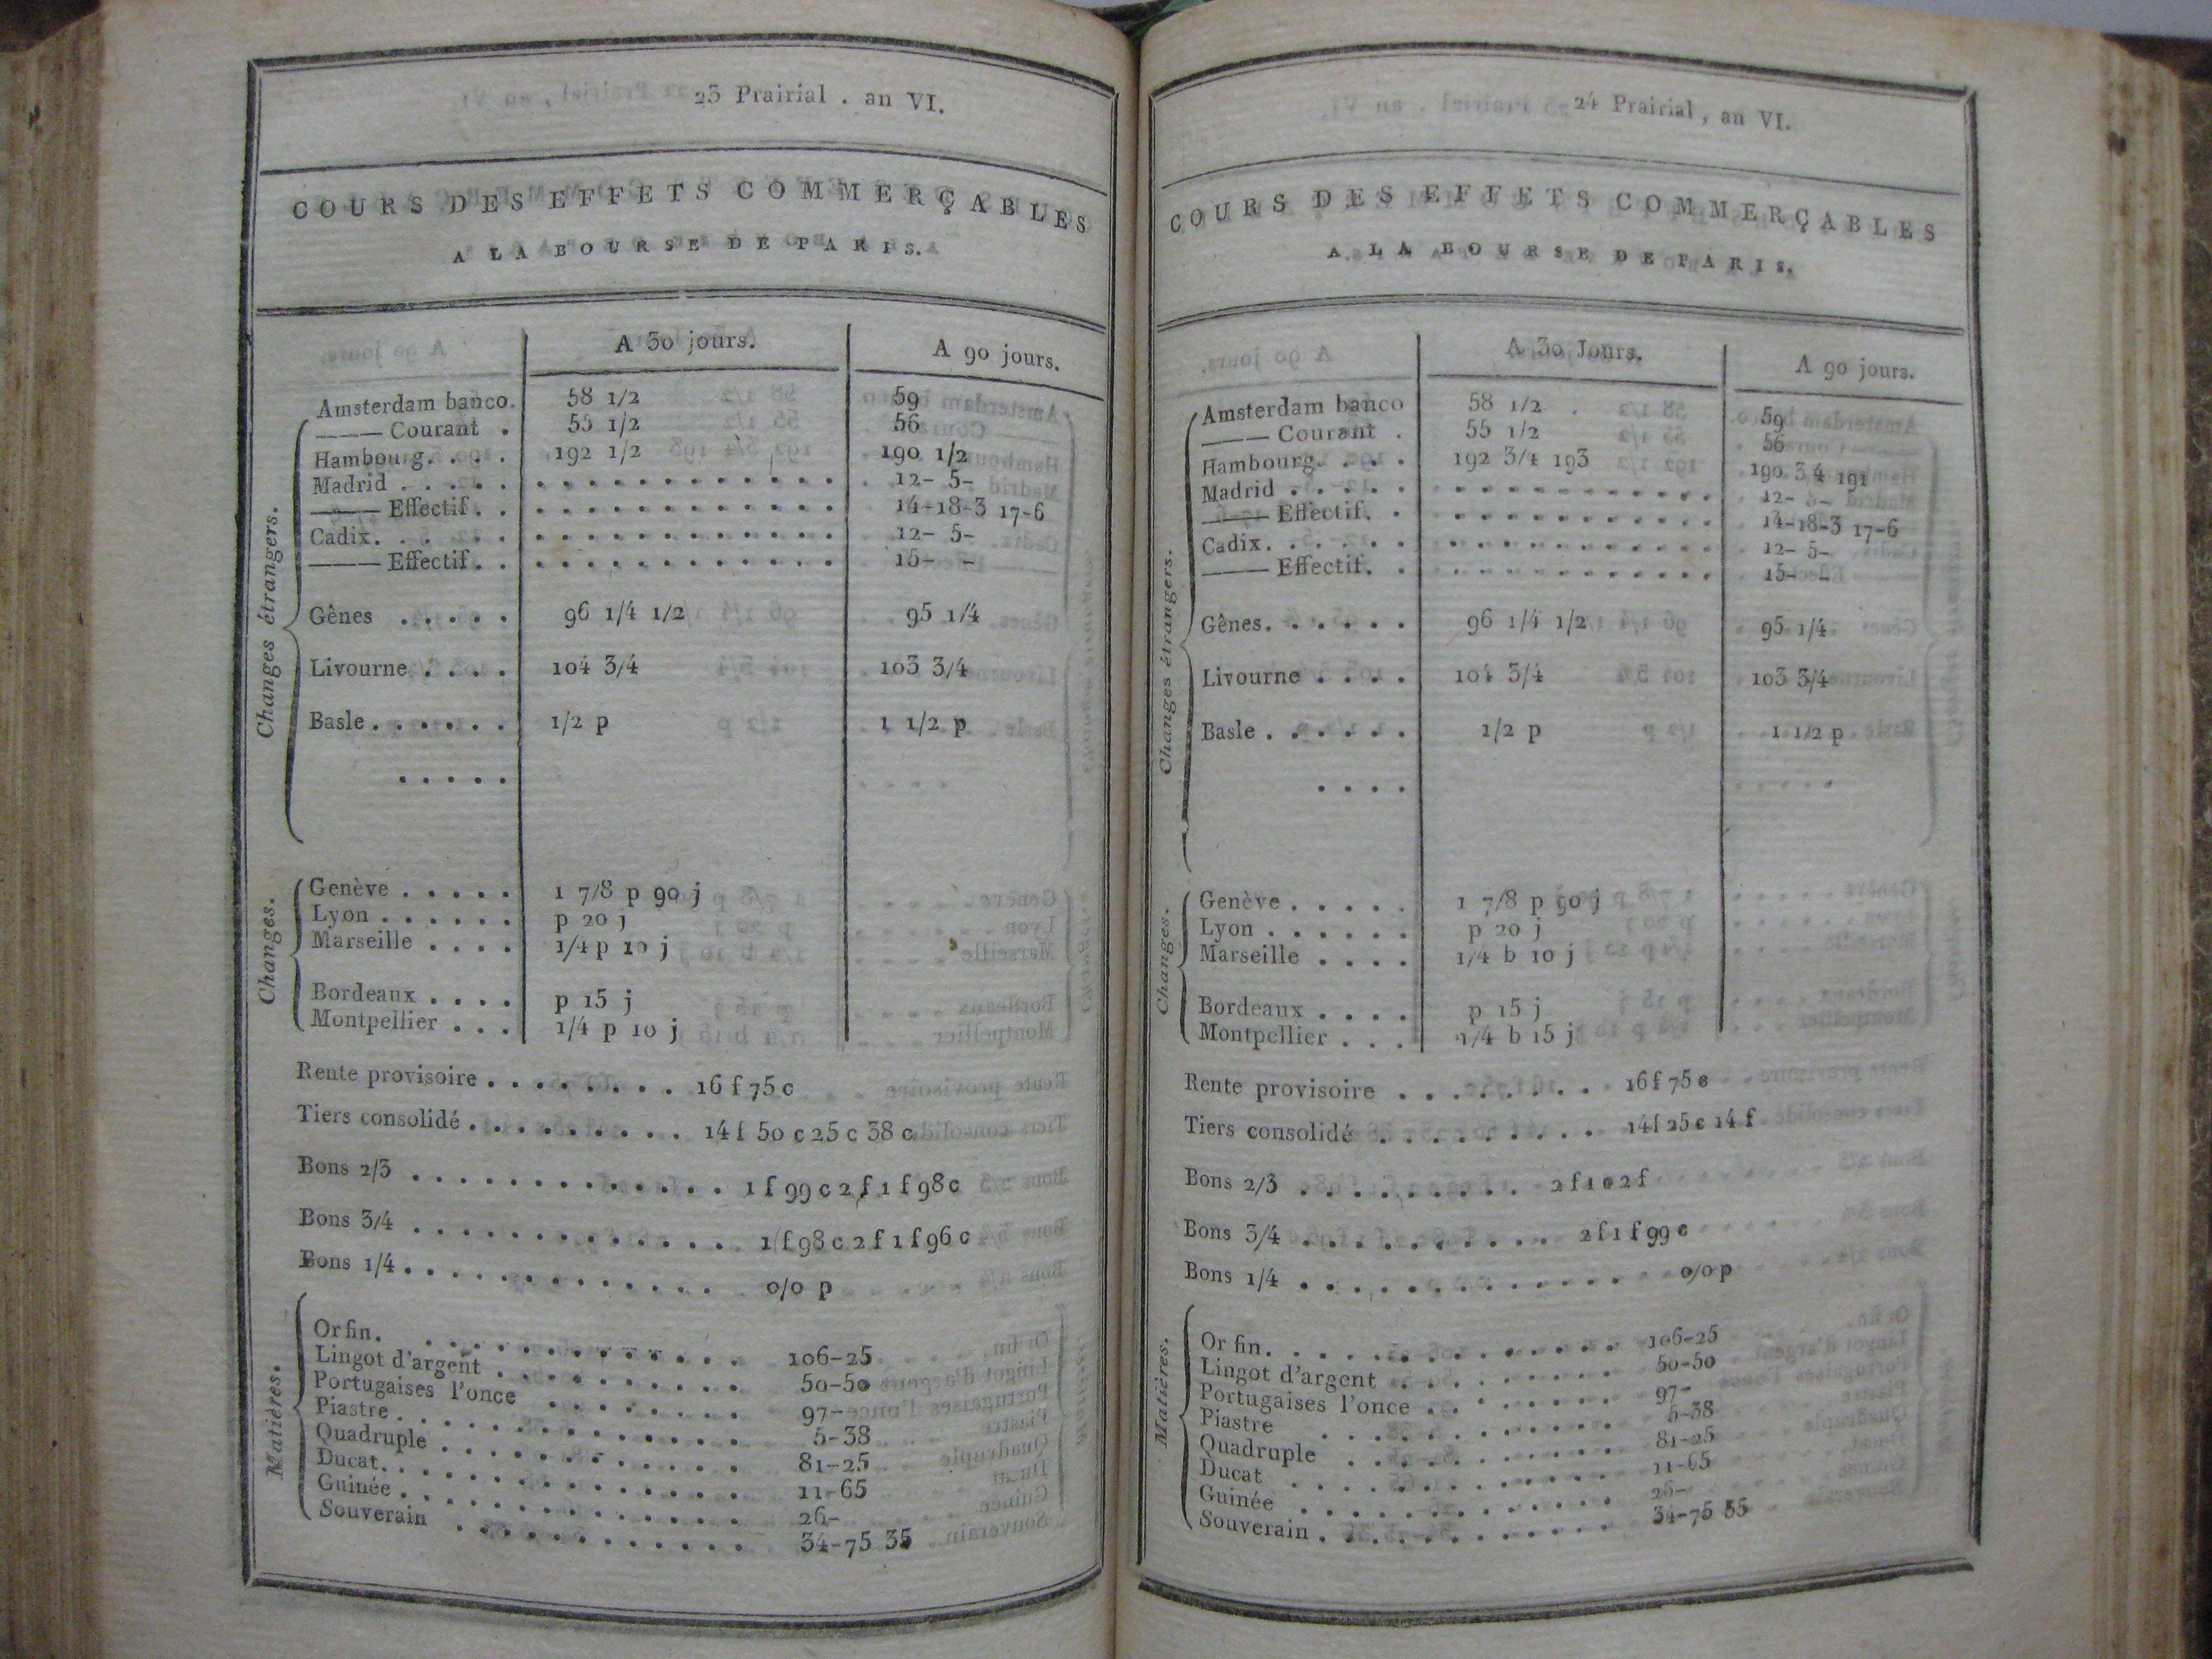 23 Prairial . an VI.
COURS DES EFFETS COMMERÇABLES
A LA BOURSE DE PARIS.
A 30 jours. A 90 jours.
Changes étrangers.
Amsterdam banco. 58 1/2 59
——— Courant . 55 1/2 56
Hambourg. . . . 192 1/2 190 1/2
Madrid . . . . . . . . . . . . . . . . . 12- 5-
——— Effectif. . . . . . . . . . . . . . 14-18-3 17-6
Cadix. . . . . . . . . . . . . . . . . . 12- 5-
——— Effectif. . . . . . . . . . . . . . 15- -
Gênes . . . . . 96 1/4 1/2 95 1/4
Livourne . . . . 104 3/4 103 3/4
Basle . . . . . . 1/2 p 1 1/2 p
. . . . .
Changes.
Genève . . . . . 1 7/8 p 90 j
Lyon . . . . . . p 20 j
Marseille . . . . 1/4 p 10 j
Bordeaux . . . . p 15 j
Montpellier . . . 1/4 p 10 j
Rente provisoire . . . . . . . . 16 f 75 c
Tiers consolidé . . . . . . . . . 14 f 50 c 25 c 38 c
Bons 2/3 . . . . . . . . . . . . . 1 f 99 c 2 f 1 f 98 c
Bons 3/4 . . . . . . . . . . . . . 1 f 98 c 2 f 1 f 96 c
Bons 1/4 . . . . . . . . . . . . . 0/0 p
Matières.
Or fin. . . . . . . . . . . . . . 106-25
Lingot d'argent . . . . . . . . . . 50-50
Portugaises l'once . . . . . . . . 97-
Piastre . . . . . . . . . . . . . . 5-38
Quadruple . . . . . . . . . . . . . 81-25
Ducat. . . . . . . . . . . . . . . 11-65
Guinée . . . . . . . . . . . . . . 26-
Souverain . . . . . . . . . . . . 34-75 35
24 Prairial , an VI.
COURS DES EFFETS COMMERÇABLES
A LA BOURSE DE PARIS.
A 30 Jours. A 90 jours.
Changes étrangers.
Amsterdam banco 58 1/2 59
——— Courant . 55 1/2 56
Hambourg. . . . 192 3/4 193 190 3 4 191
Madrid . . . . . . . . . . . . . . . . 12- 5-
——— Effectif. . . . . . . . . . . . . 14-18-3 17-6
Cadix. . . . . . . . . . . . . . . . . 12- 5-
——— Effectif. . . . . . . . . . . . . 15- -
Gênes. . . . . . 96 1/4 1/2 95 1/4
Livourne . . . . 104 3/4 103 3/4
Basle . . . . . . 1/2 p 1 1/2 p
. . . .
Changes.
Genève . . . . . 1 7/8 p 90 j
Lyon . . . . . . p 20 j
Marseille . . . . 1/4 b 10 j
Bordeaux . . . . p 15 j
Montpellier . . . 1/4 b 15 j
Rente provisoire . . . . . . . . 16 f 75 c
Tiers consolidé . . . . . . . . . 14 f 25 c 14 f
Bons 2/3 . . . . . . . . . 2 f 1 c 2 f
Bons 3/4 . . . . . . . . . . 2 f 1 f 99 c
Bons 1/4 . . . . . . . . . . . . 0/0 p
Matières.
Or fin. . . . . . . . . . . . . . . 106-25
Lingot d'argent . . . . . . . . . 50-50
Portugaises l'once . . . . . . . . 97-
Piastre . . . . . . . . . . . . 5-38
Quadruple . . . . . . . . . . . 81-25
Ducat . . . . . . . . . . . . . 11-65
Guinée . . . . . . . . . . . . . 26-
Souverain . . . . . . . . . . . . 34-75 35